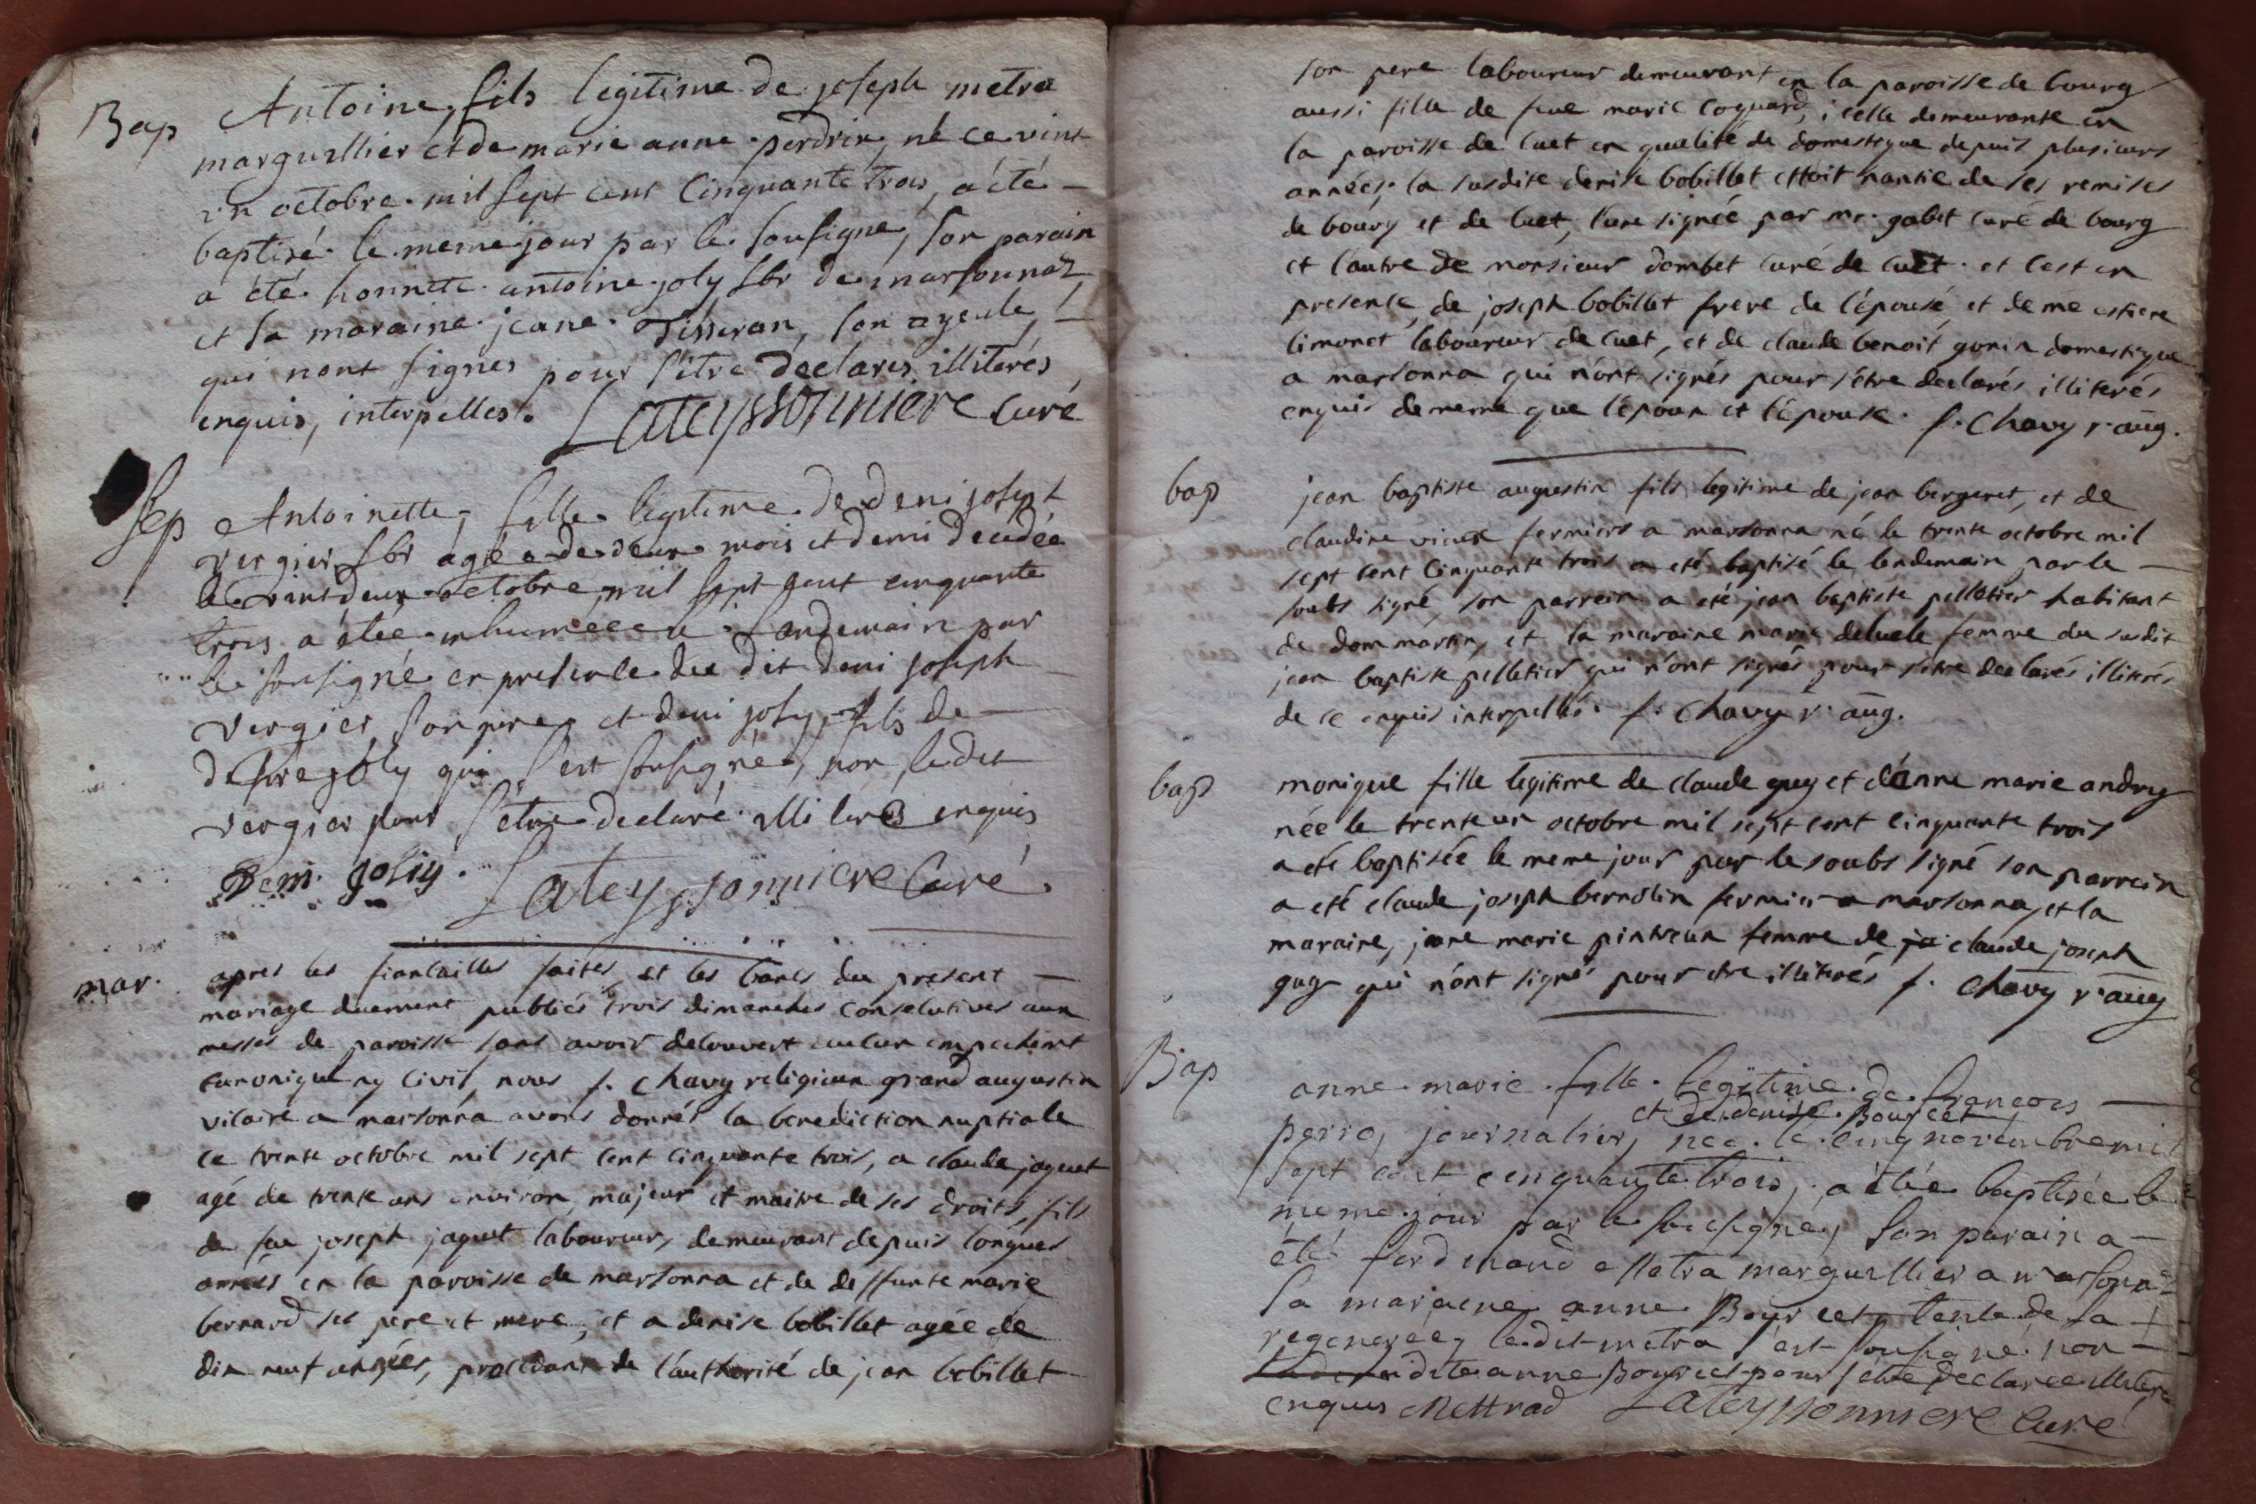 Bap Antoine, fils legitime de joseph metra
marguillier et de marie anne perdrix, né ce vint
un octobre mil sept cent cinquante trois, a été
baptisé le meme jour par le sousigné, son parain
a été honnete antoine joly lbr de marsonnaz
et sa maraine jeane Tisseran, son ayeule,
qui nont signes pour s'être declares illiterés
enquis, interpelles. Lateyssonniere curé
Sep Antoinette, fille legitime de deni joseph
vergier lbr agée de deux mois et demi decedée
le vint deux octobre mil sept cent cinquante
trois a étée inhumée le landemain par
le sousigné en presence du dit deni joseph
vergier, son pere et deni joly, fils de
joly qui s'est sousigné, non ledit
vergier pour s'etre declaré illiteré enquis
Deni joliy. Lateyssonniere Curé.
mar. apres les fiancailles faites et les bancs du present
mariage duement publiés trois dimanches consecutives aux
messes de paroisse sans avoir decouvert aucun empechemt
canonique ny civil, nous f. Chavy religieux grand augustin
vicaire a marsonna avons donnés la benediction nuptiale
ce trente octobre mil sept cent cinquante trois, a claude jaquet
agé de trente ans environ, majeur et maitre de ses droits, fils
de feu joseph jaquet laboureur, demeurant depuis longues
années en la paroisse de marsonna et de deffunte marie
bernard ses pere et mere, et a denise bobillet agée de
dix neuf années, procedant de l'authorité de jean bobillet
son pere laboureur demeurant en la paroisse de bourg
aussi fille de feue marie coquard, icelle demeurante en
la paroisse de cuet en qualité de domestique depuis plusieurs
années, la susdite denise bobillet ettoit nantie de ses remises
de bourg et de cuet, l'une signée par mr. gabet curé de bourg
et l'autre de monsieur dombet curé de cuet. et c'est en
presence, de joseph bobillet frere de l'épouse, et de me estiene
limonet laboureur de cuet, et de claude benoit gonin domestique
a marsonna qui n'ont signés pour s'être declarés illiterés
enquis de meme que l'époux et l'épouse. f. Chavy r. aug.
bap jean baptiste augustin fils legitime de jean bergeret, et de
claudine vieux fermiers a marsonna né le trente octobre mil
sept cent cinquante trois a eté baptisé le lendemain par le
soubs signé, son parrein a eté jean baptiste pelletier habitant
de dommartin, et la maraine marie deluele femme du susdit
jean baptiste pelletier qui n'ont signés pour s'etre declarés illiterés
de ce enquis interpellés. f. Chavy r. aug.
bap monique fille legitime de claude guy et d'anne marie andry
née le trente un octobre mil sept cent cinquante trois
a eté baptisée le meme jour par le soubs signé son parrein
a eté claude joseph bernolin fermier a marsonna, et la
maraine, jeane marie pintreux femme de claude joseph
guy qui n'ont signés pour etre illiterés f. Chavy r. aug
Bap anne marie fille legitime de francois
et de denise Bourcet
perre, journalier, née le cinq novembre mil
sept cent cinquante trois, a étée baptisée le
meme jour par le sousigné, son parain a
été ferdinand Metra marguillier a marsonnaz
sa maraine anne Bourcet tente de la
regenerée, ledit metra s'est sousigné non
ladite anne Bourcet pour s'etre declaree illitere
enquis Mettrad Lateyssonniere Curé